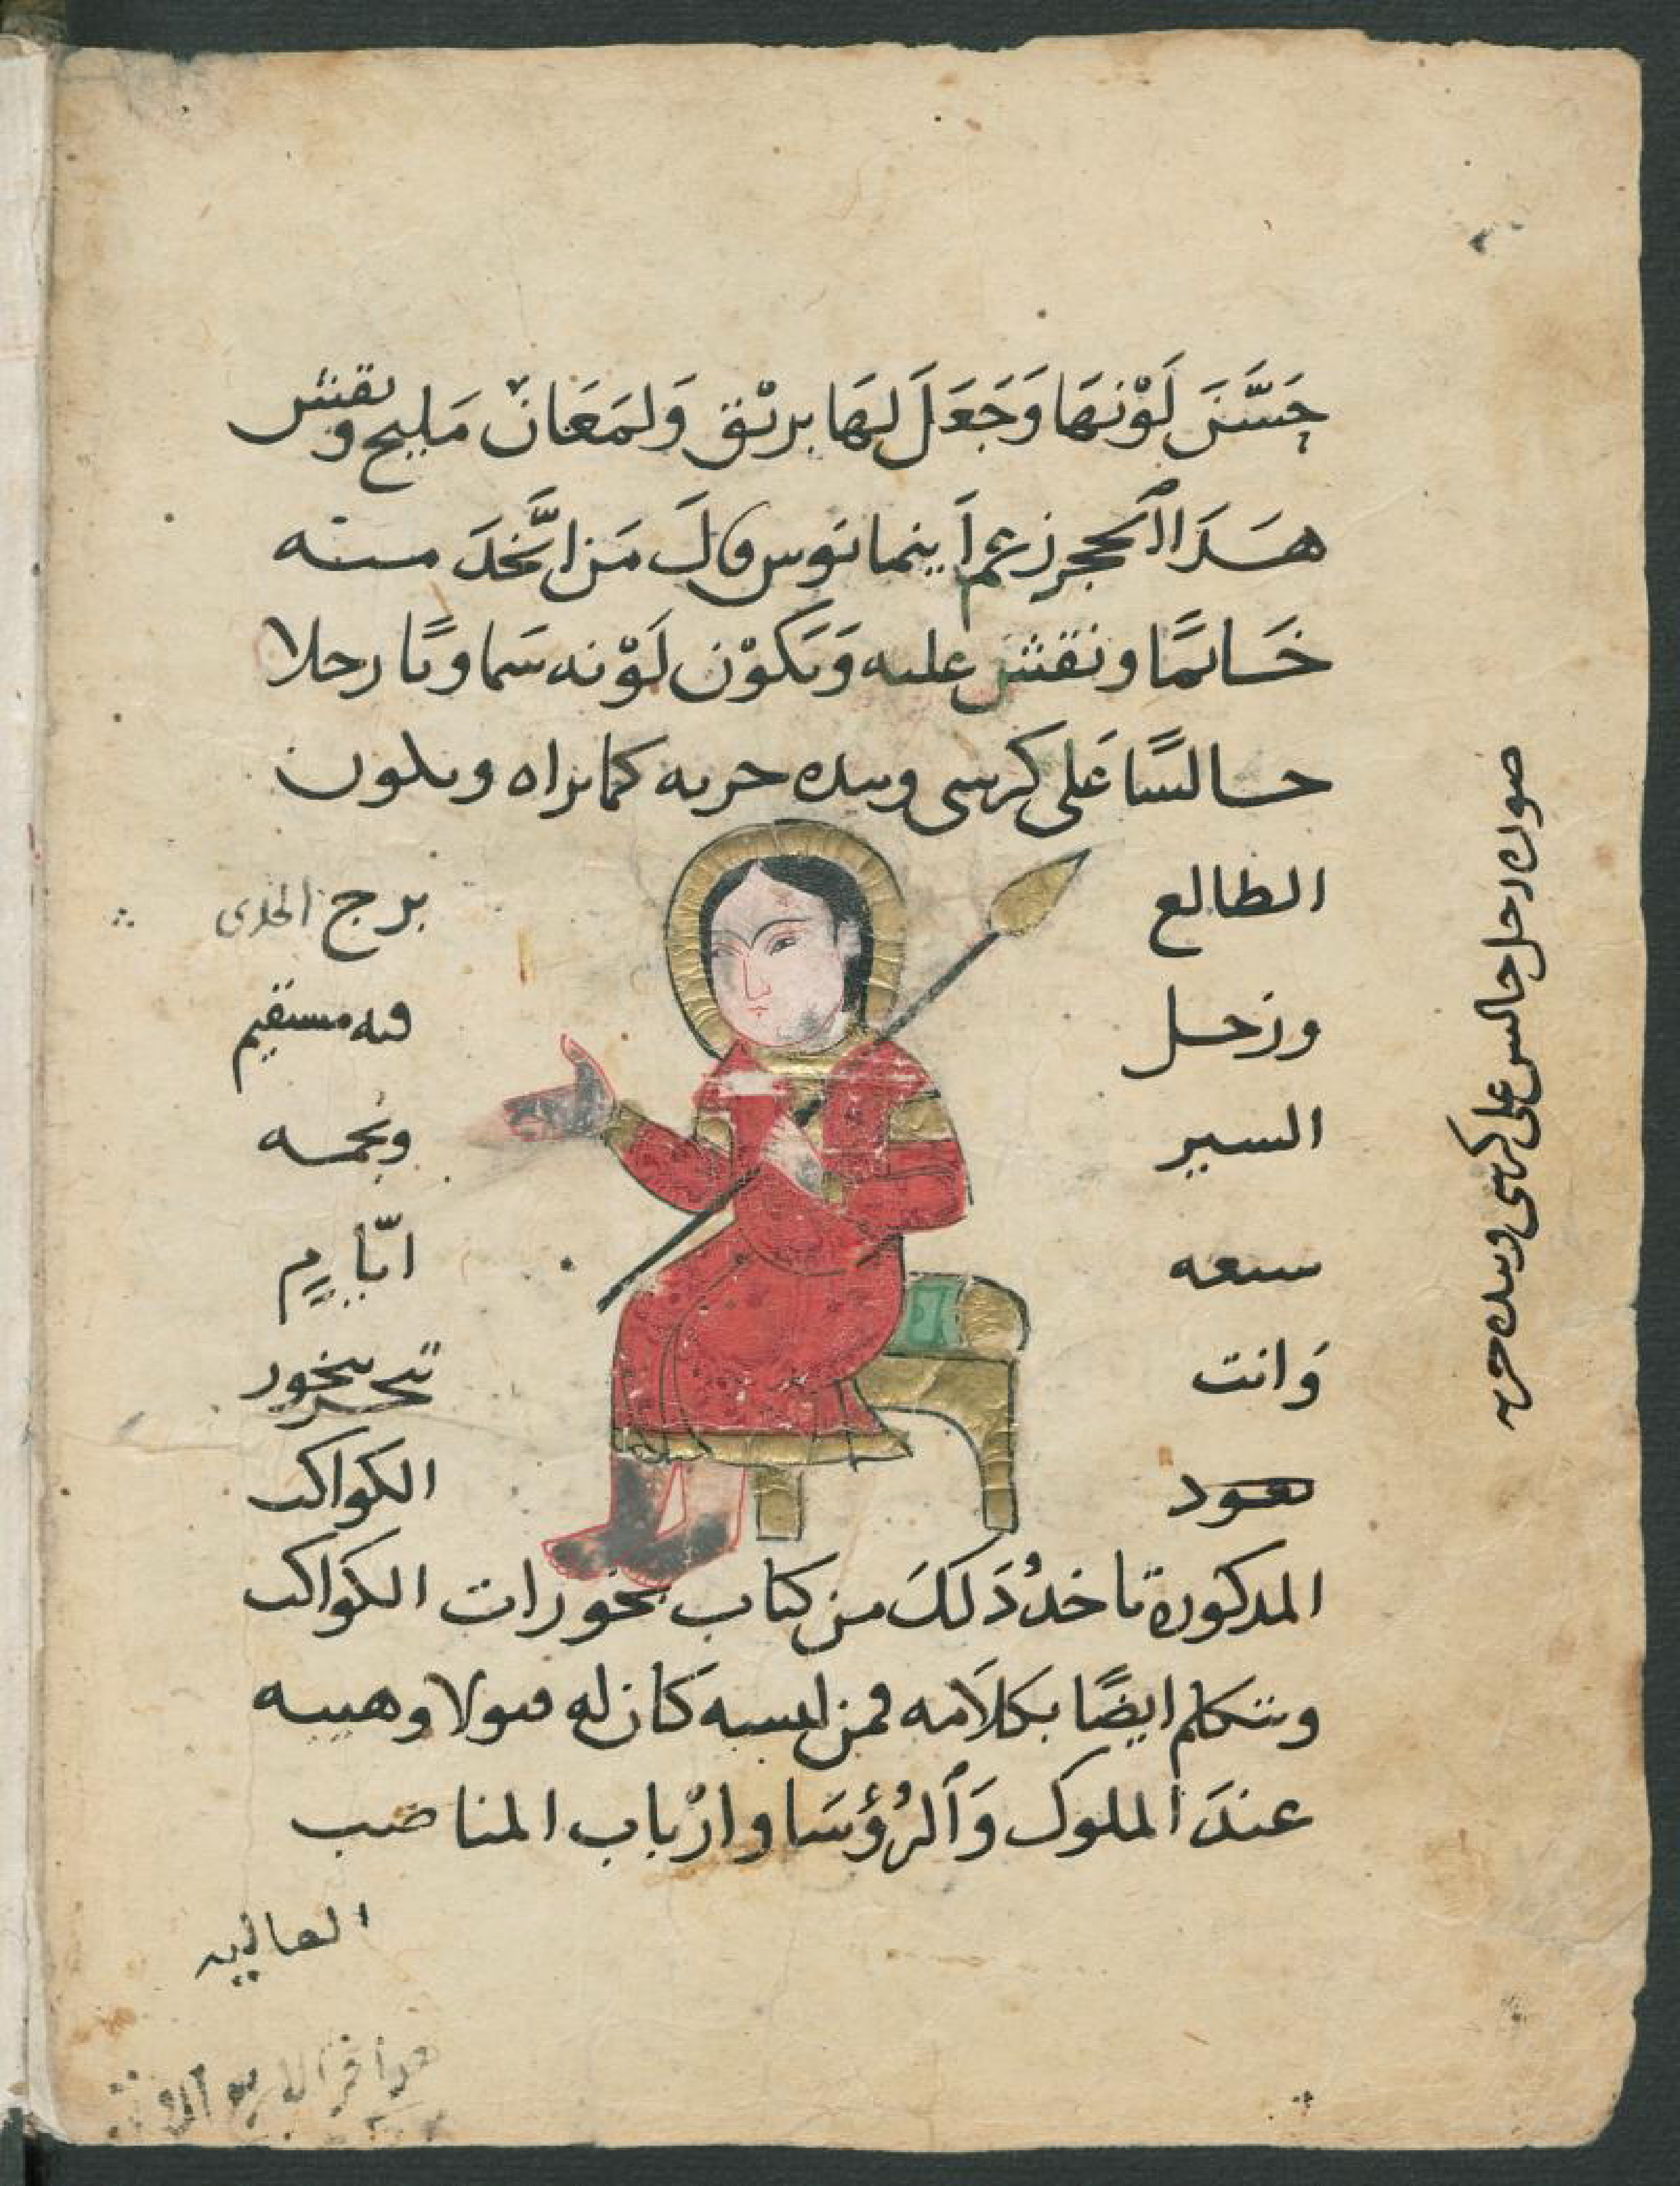 حَسَّنَ لَوْنهَا وَجَعَلَ لهَا برْيْق وَلمَعَانْ مَليح ونقش
هَدَا اْلحجر زعم اَينمانوس قالَ مَن اتَّخدَ مسه
خَاتمًا ونقش عليه وَيَكوْن لَوْنه سَماويًا رجلا
جالسًا عَلى كرسى وبيده حربه كما براه ويكون
الطالع برج الجدى
وزحل فيه مستقيم
السير ونحمسه
سبعه ايّام
وَانت تبخر ببخور
هعود الكواكب
المدكورة تاخدُ دَلكَ من كتاب بخورات الكَواكب
وتتكلم ايضًا بكلاَمه فمن لبسه كان له قبولا وهيبه
عندَ الملوك وَاْلرُؤسَا وارْباب المناصب
العاليه
صوره رجل جالس على كرسى وبيده حربه